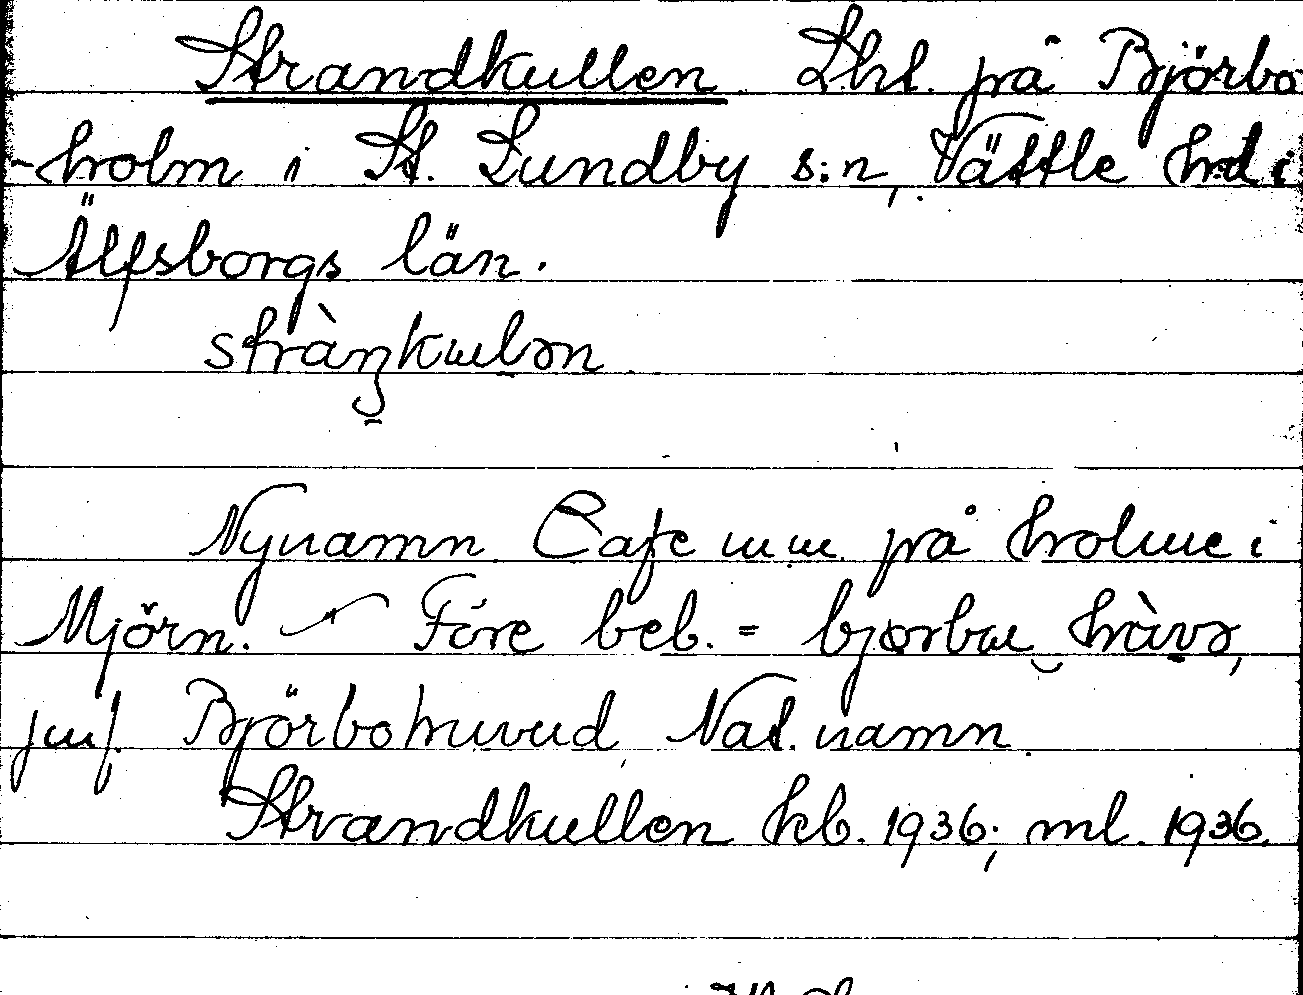 Strandkullen Lht. på Björbo
-holm i St. Lundby s:n, Vättle hd i
Älfsborgs län.
stràŋkɯlən
Nynamn Cafe m.m. på holme i
Mjörn. Före beb. = bjørbɯ hàvə,
jmf. Björbohuvud Nat. namn.
Strandkullen kb. 1936; ml. 1936.